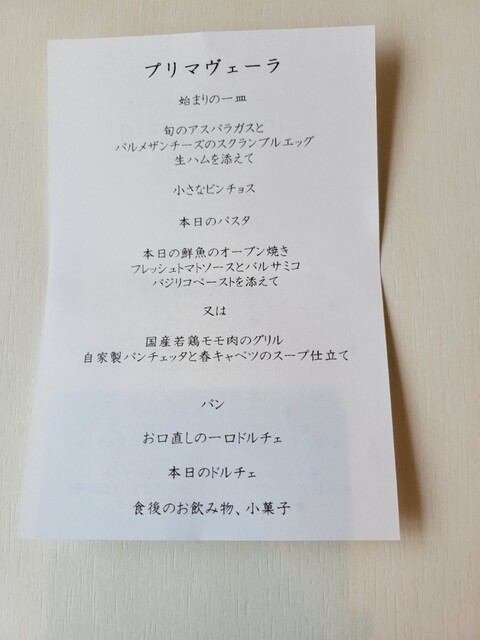 プリマヴェーラ
始まりの一皿
旬のアスパラガスと
パルメザンチーズのスクランブルエッグ
生ハムを添えて
小さなピンチョス
本日のパスタ
本日の鮮魚のオーブン焼き
フレッシュトマトソースとバルサミコ
バジリコペーストを添えて
又は
国産若鶏モモ肉のグリル
自家製パンチェッタと春キャベツのスープ仕立て
パン
お口直しの一口ドルチェ
本日のドルチェ
食後のお飲み物、小菓子